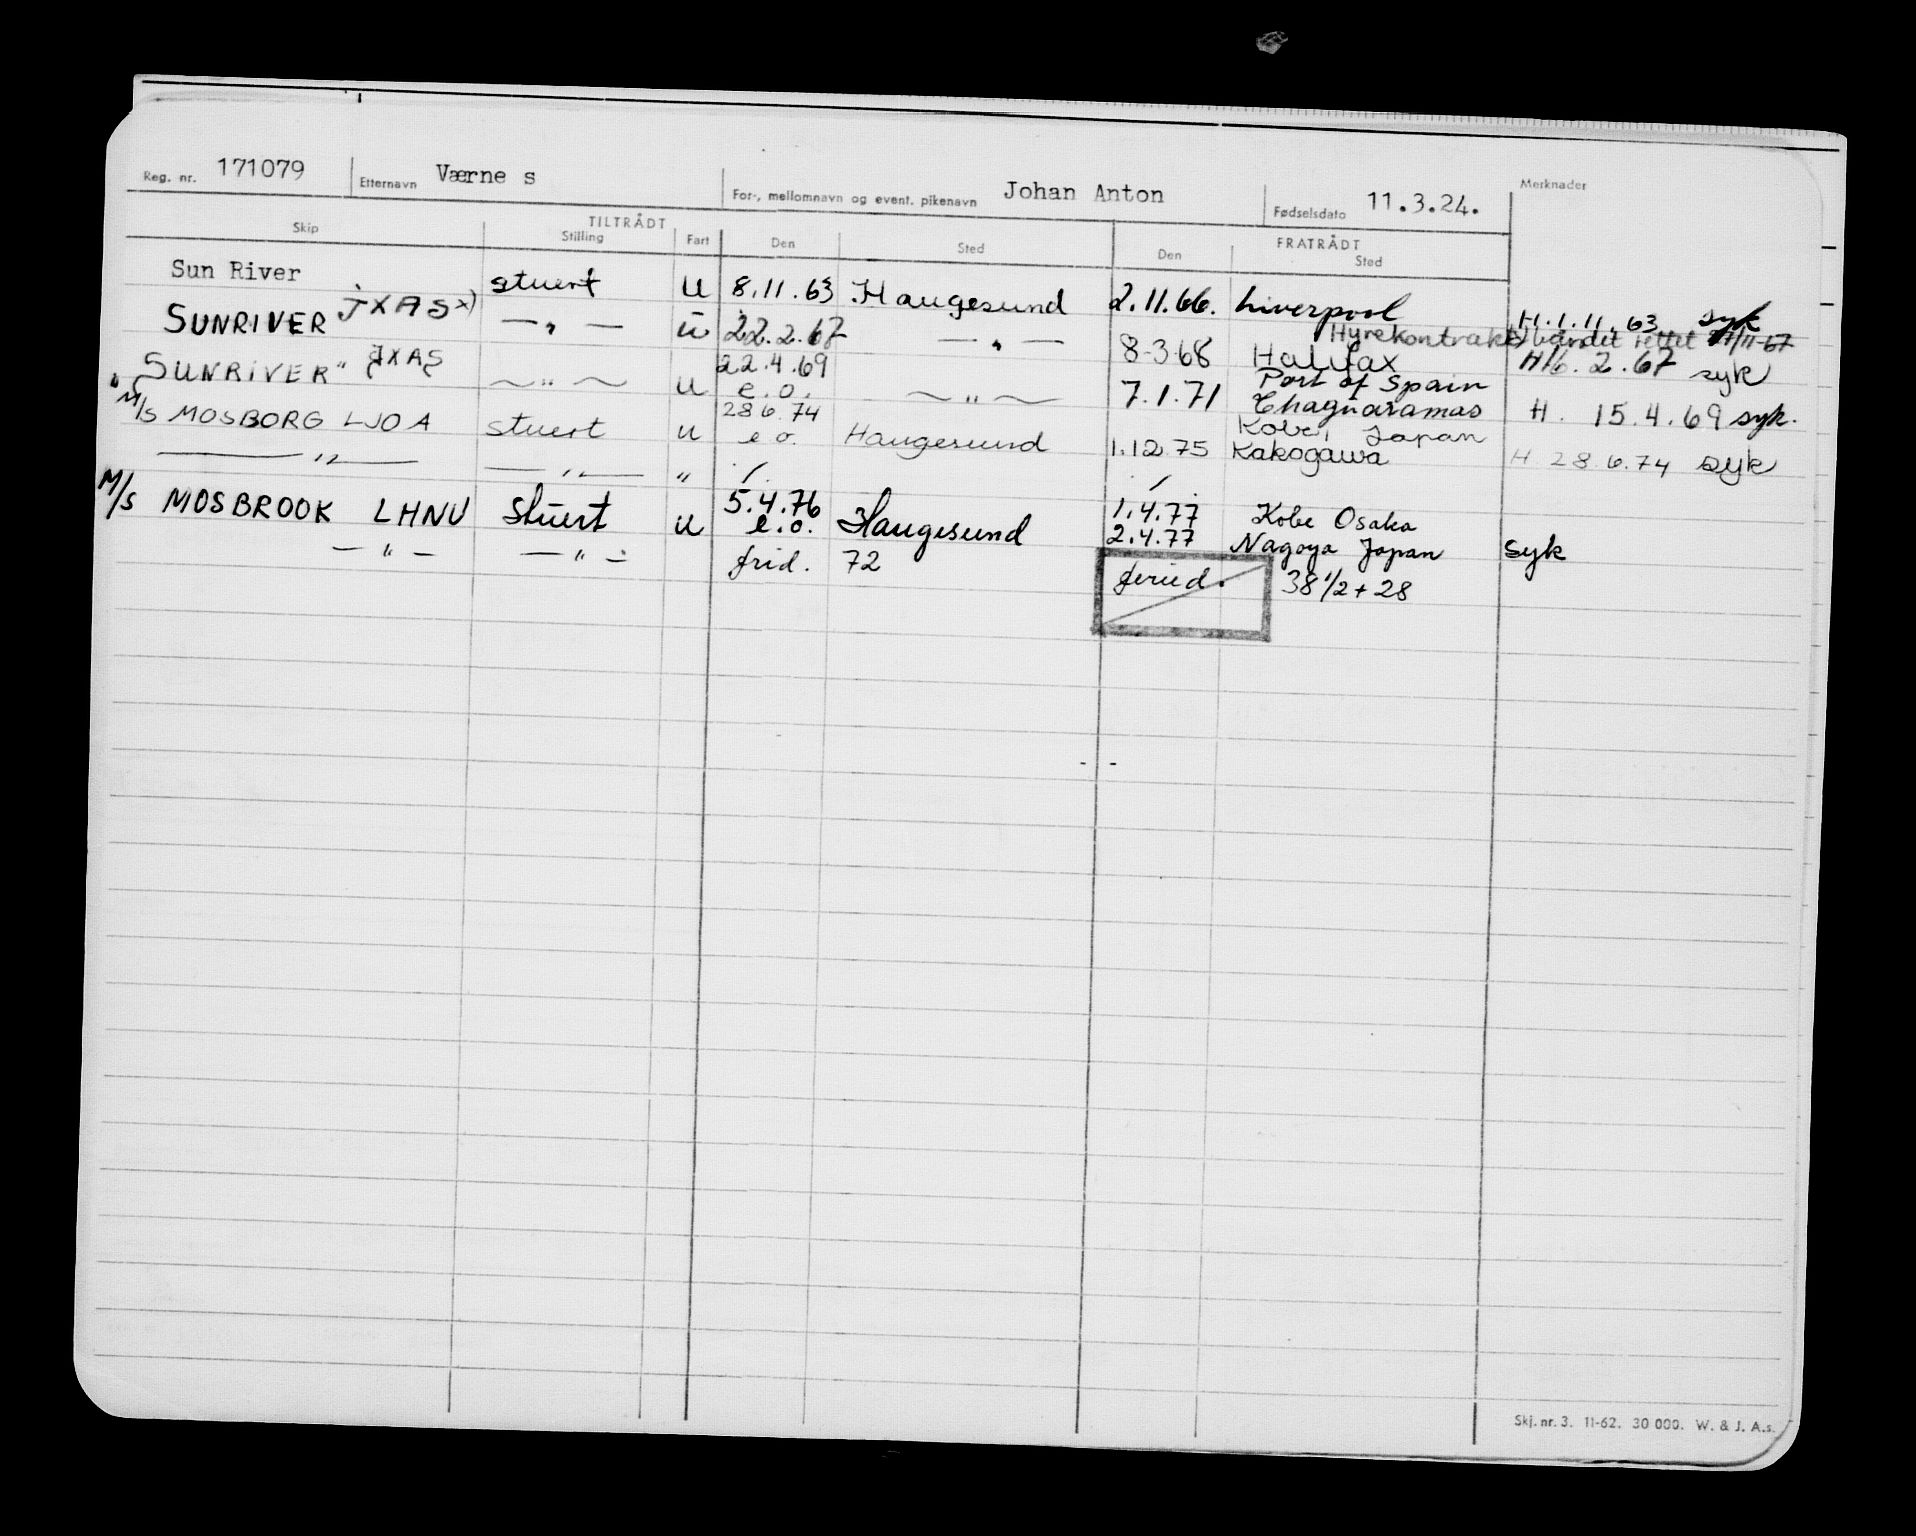 Reg. nr. 171079 Etternavn Værne s For-, mellomnavn og event. pikenavn Johan Anton Fødselsdato 11.3.24. Merknader
TILTRÅDT FRATRÅDT
Skip Stilling Fart Den Sted Den Sted
Sun River stuert u 8.11.63 Haugesund 2.11.66. Liverpool H.1.11.63 syk
JXAS x) Hyrekontrakt rettet 7/11-67
SUNRIVER — " — u 22.2.67 — " — 8-3-68 Halifax H16.2.67 syk
22.4.69 Port of Spain
" SUNRIVER " JXAS ~ " ~ u e.o. ~ " ~ 7.1.71 Chaguaramas H. 15.4.69 syk.
28.6.74 Kobe, Japan
M/S MOSBORG LJOA stuert u e.o. Haugesund 1.12.75 Kakogawa H 28.6.74 syk
— " — — " — "
5.4.76 1.4.77 Kobe Osaka
M/S MOSBROOK LHNU Stuert u e.o. Haugesund 2.4.77 Nagoya Japan syk
— " — — " — frid. 72 feried. 38 1/2 + 28
Skj. nr. 3. 11-62. 30 000. W. & J. A.s.